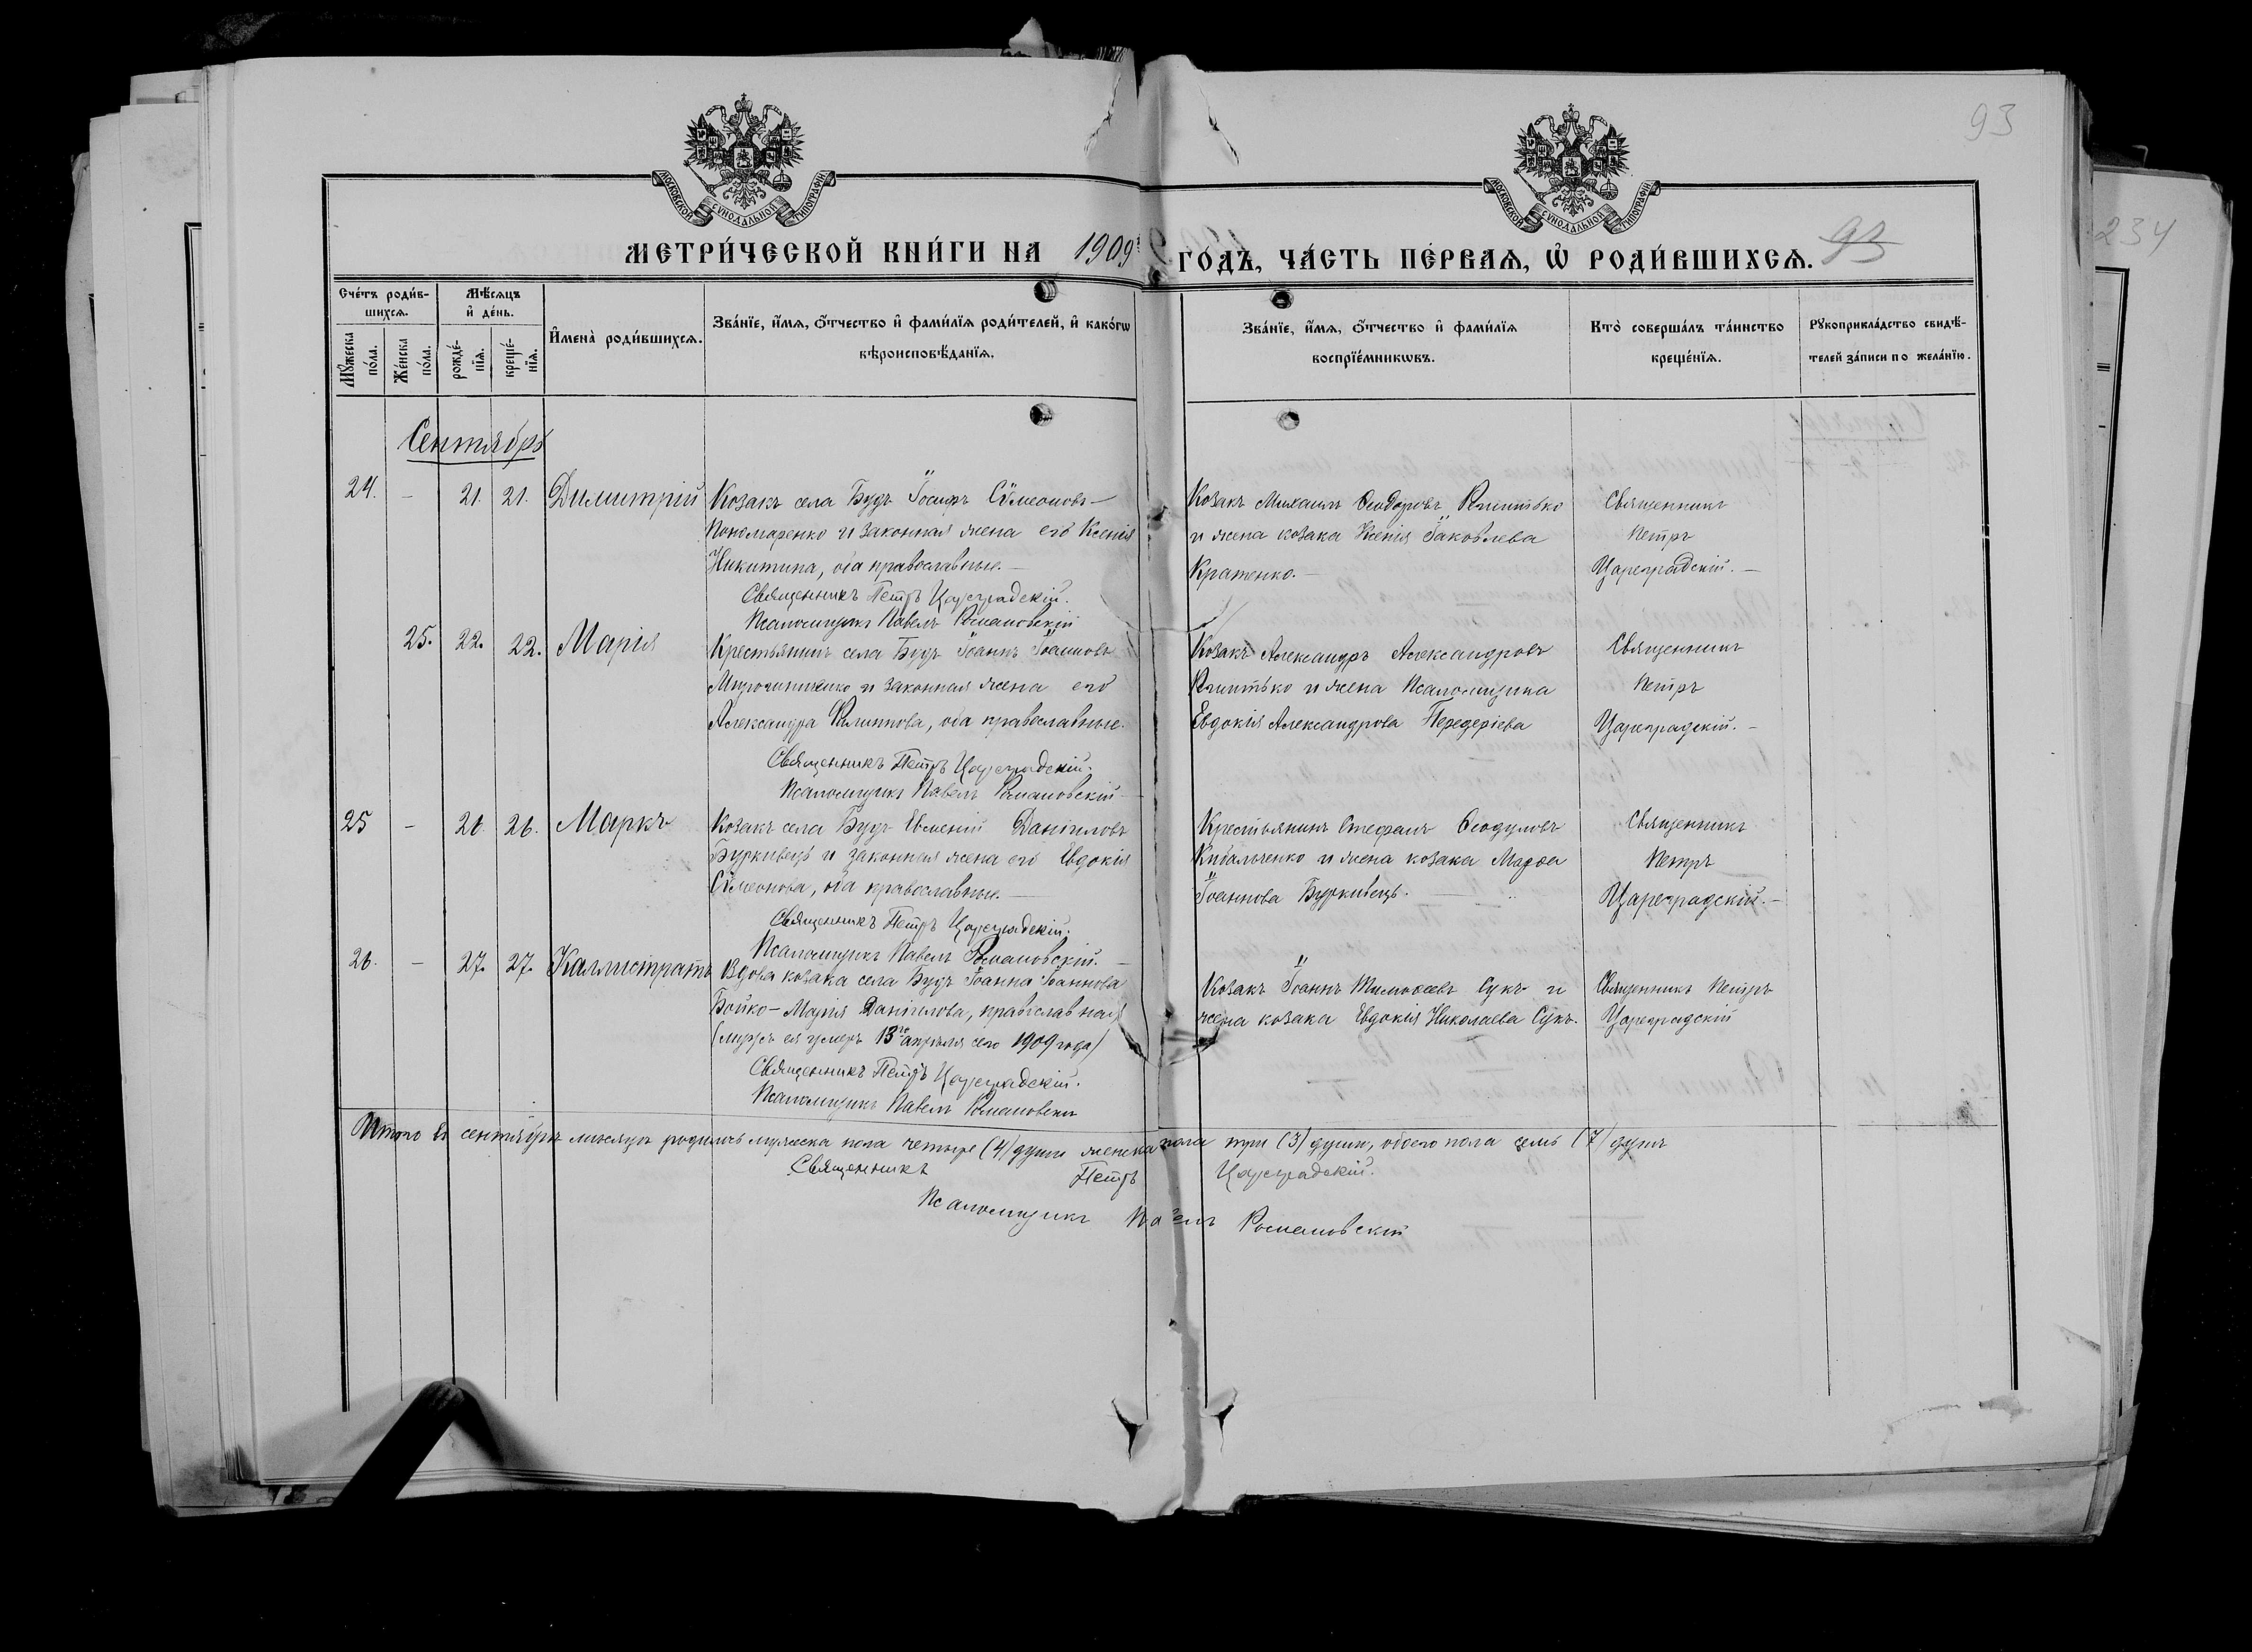 93
234
МОСКОВСКОЙ СѴНОДАЛЬНОЙ ТИПОГРАФІИ
МОСКОВСКОЙ СѴНОДАЛЬНОЙ ТИПОГРАФІИ
МЕТРИ́ЧЕСКОЙ КНИ́ГИ НА 1909 ГО́ДЪ, ЧА́СТЬ ПЕ́РВАѦ, Ѡ҆ РОДИ́ВШИХСѦ. 93
Сче́тъ роди́в-
шихсѧ.
Мѣ́сѧцъ
и҆ де́нь.
Мꙋ́жеска
по́ла.
Же́нска
по́ла.
рожде́-
нїѧ.
креще́-
нїѧ.
И҆мена̀ роди́вшихсѧ.
Зва́нїе, и҆́мѧ, ѻ҆́тчество и҆ фами́лїѧ роди́телей, и҆ како́гѡ
вѣроисповѣ́данїѧ.
Зва́нїе, и҆́мѧ, ѻ҆́тчество и҆ фами́лїѧ
воспрїе́мникѡвъ.
Кто̀ соверша́лъ та́инство
креще́нїѧ.
Рꙋкоприкла́дство свидѣ́-
телей за́писи по жела́нїю.
Сентябрь
24. — 21. 21. Димитрій Козакъ села Будъ Іосифъ Сѵмеоновъ
Пономаренко и законная жена его Ксенія
Никитина, оба православные. —
Священникъ Петръ Цареградскій.
Псаломщикъ Павелъ Романовскій
Козакъ Михаилъ Ѳеодоровъ
и жена козака Ксенія Іаковлева
Кратенко. —
Священникъ
Петръ
Цареградскій. —
25. 22. 22. Марія Крестьянинъ села Будъ Іоаннъ Іоанновъ
и законная жена его
Александра Филиппова, оба православные.
Священникъ Петръ Цареградскій.
Псаломщикъ Павелъ Романовскій
Козакъ Александръ Александровъ
и жена Псаломщика
Евдокія Александрова Передеріева
Священникъ
Петръ
Цареградскій. —
25 — 26. 26. Маркъ Козакъ села Будъ Евменій Даніиловъ
Бурковецъ и законная жена его Евдокія
Сѵмеонова, оба православные. —
Священникъ Петръ Цареградскій.
Псаломщикъ Павелъ Романовскій. —
Крестьянинъ Стефанъ Ѳеодуловъ
Кибальченко и жена козака Марѳа
Іоаннова Бурковецъ.
Священникъ
Петръ
Цареградскій. —
26. — 27. 27. Каллистратъ Вдова козака села Будъ Іоанна Іоаннова
Бойко — Марія Даніилова, православная
(мужъ ея умеръ 13го апрѣля сего 1909 года)
Священникъ Петръ Цареградскій.
Псаломщикъ Павелъ Романовскій
Козакъ Іоаннъ Тимоѳеевъ Сукъ и
жена козака Евдокія Николаева Сукъ.
Священникъ Петръ
Цареградскій
Итого въ сентябрѣ мѣсяцѣ родилось мужеска пола четыре (4) души женска пола три (3) души, обоего пола семь (7) душъ
Священникъ Петръ Цареградскій.
Псаломщикъ Павелъ Романовскій